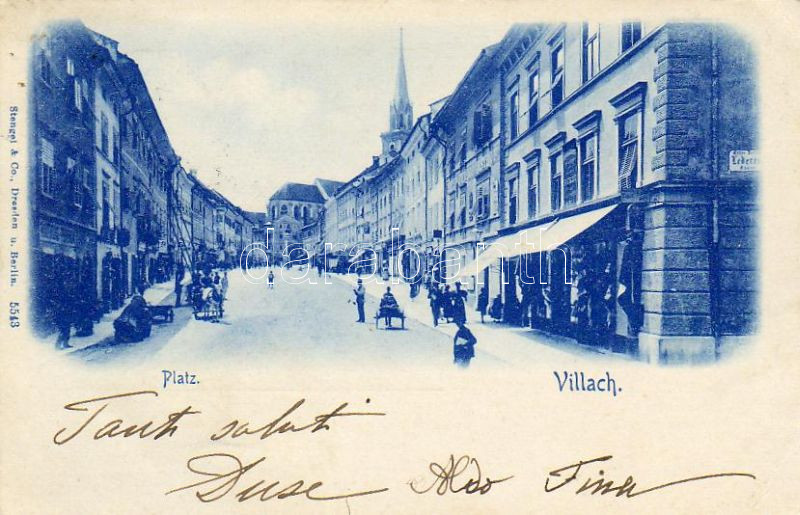 Stengel & Co., Dresden u. Berlin. 5543
Leder
darabanth
Platz. Villach.
Tanti saluti
Duse Aldo Fina